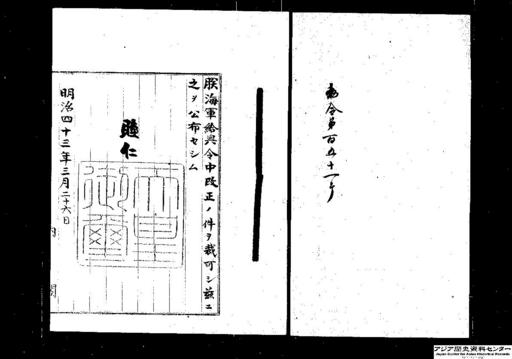 勅令第百五十一号
朕海軍給與令中改正ノ件ヲ裁可シ茲ニ
之ヲ公布セシム
睦仁
天皇御璽
明治四十三年三月二十六日
内閣
アジア歴史資料センター
Japan Center for Asian Historical Records